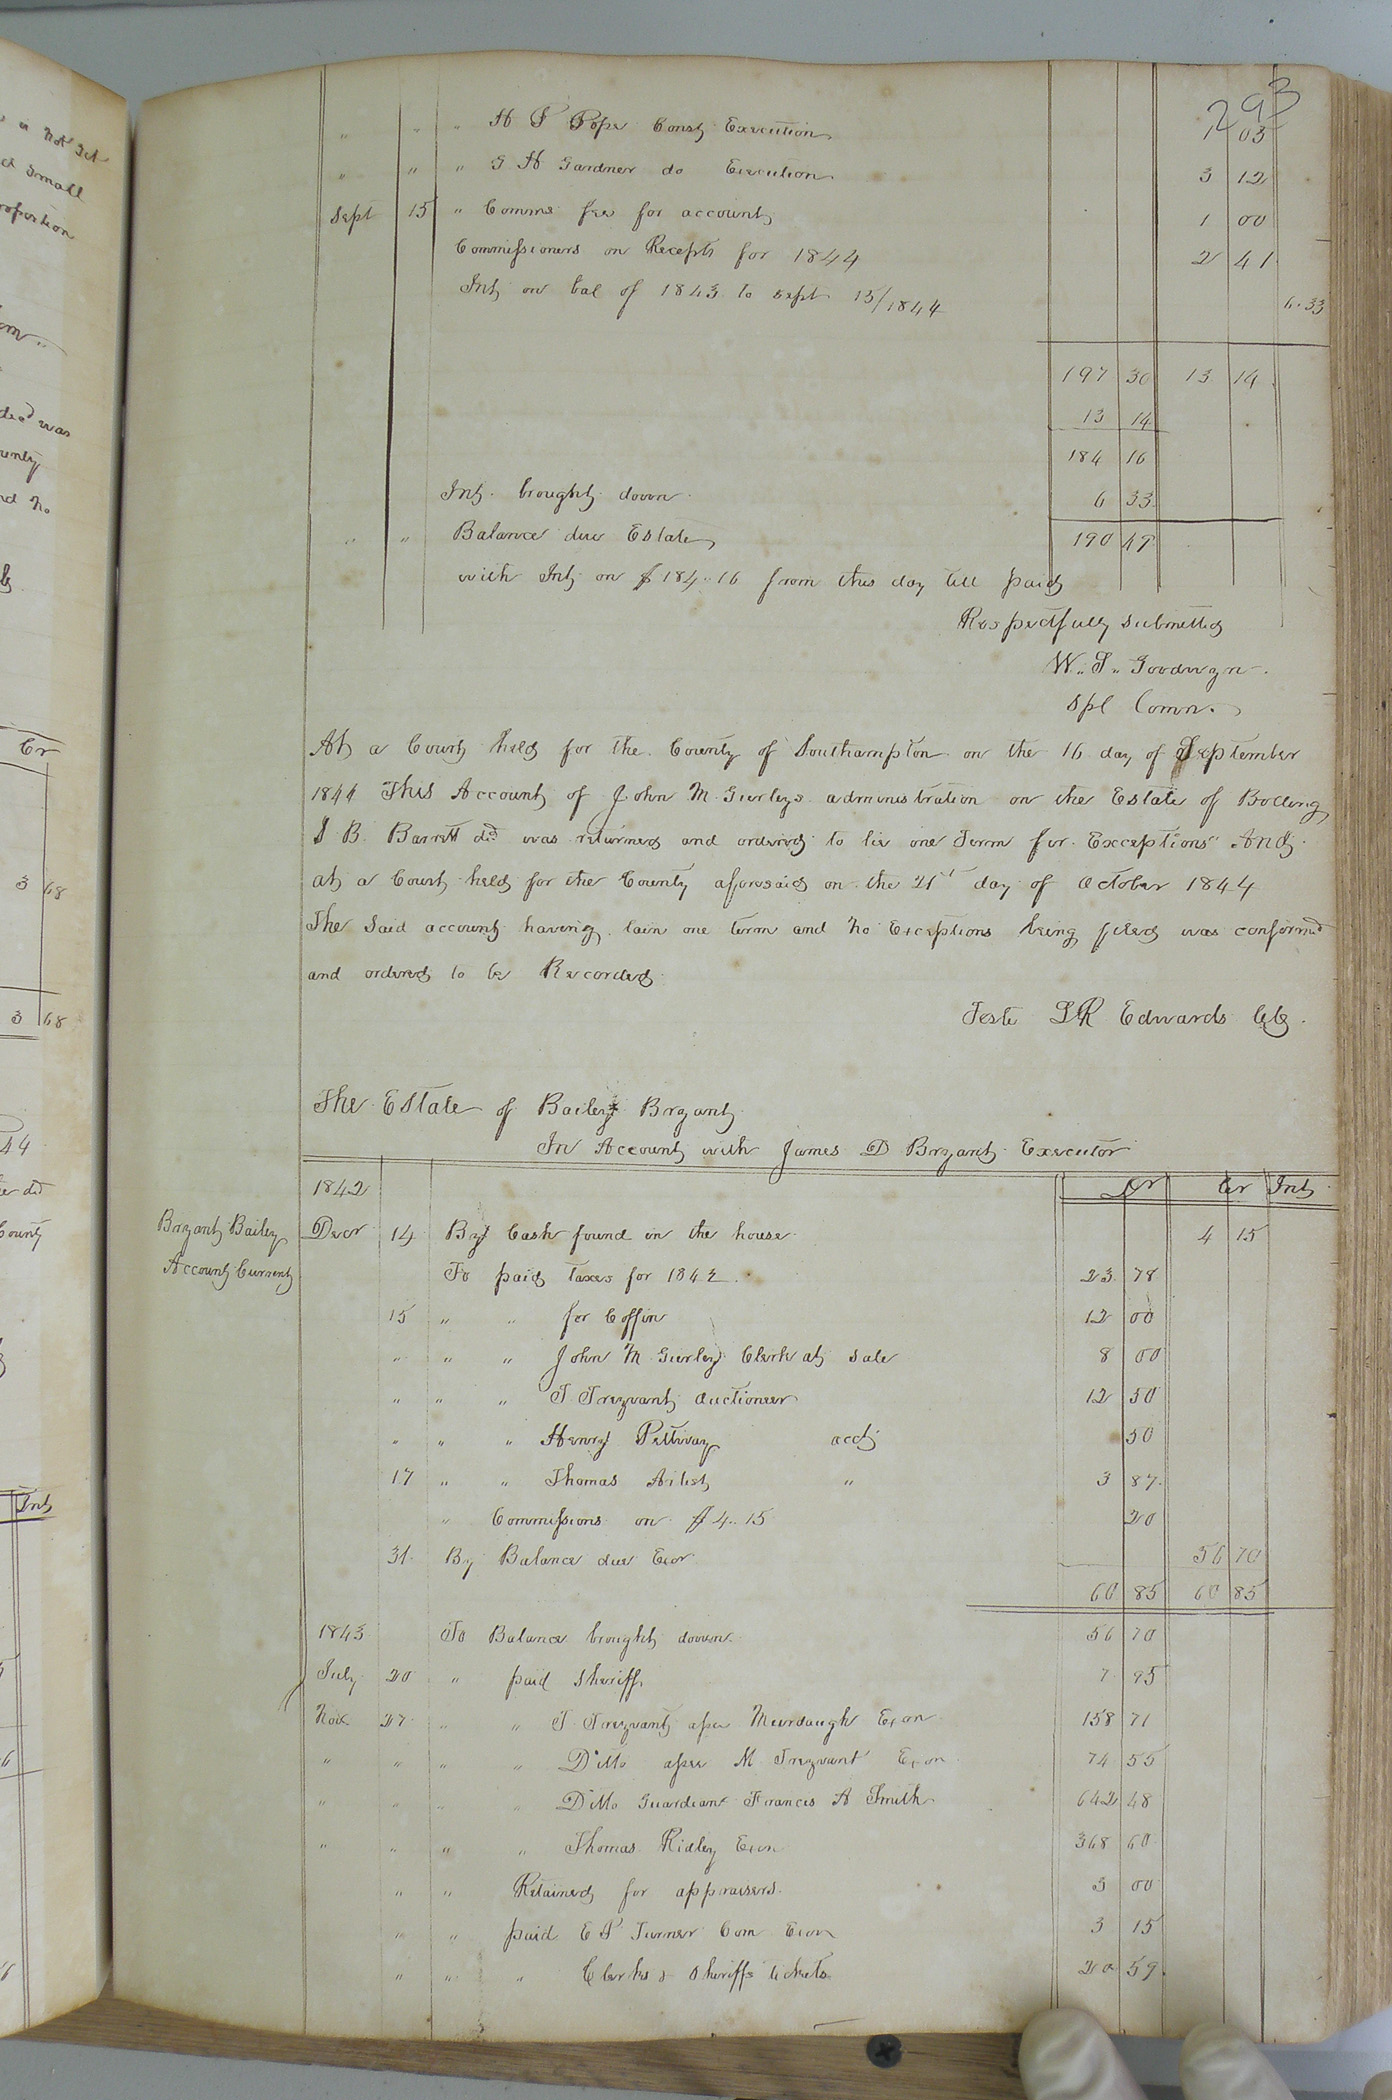 293
" " " H P Pope Const Execution 1 03
" " " G H Gardner do Execution 3 12
Sept 15 " Comms fee for account 1 00
Commissioners on Recepts for 1844 2 41
Int on bal of 1843 to sept 15/1844 6.33
197 30 13 14
13 14
184 16
Int. brought down 6 33
" " Balance due Estate 190 49
with Int on $184..16 from this day till paid
Respectfully submitted
W.. S.. Goodwyn.
Spl Comr.
At a Court held for the County of Southampton on the 16 day of September
1844 This Account of John M Gurleys administration on the Estate of Bolling
J B. Barrett decd was returned and ordered to lie one Term for Exceptions" And
at a Court held for the County aforesaid on the 21st day of October 1844
The said account having lain one term and no Exceptions being filed was confirmd
and ordered to be Recorded
Teste L R Edwards Clk.
The Estate of Bailey Bryant
In Account with James D Bryant Executor
1842 Dr Cr Int
Bryant Bailey
Account Current
Decr 14 By Cash found in the house 4 15
To paid taxes for 1842 23 78
15 " " for Coffin 12 00
" " " John M Gurley Clerk at sale 8 00
" " " T Trezvant auctioneer 12 50
" " " Henry Pettway acct 50
17 " " Thomas " 3 87
" Commissions on $4..15 20
31 By Balance due Exor 56 70
60 85 60 85
1843 To Balance brought down 56 70
July 20 " paid Sheriff 7 95
Nov 27 " " T Trezvant assee Murdaugh Exon 158 71
" " " " Ditto assee M Trezvant Exon 74 55
" " " " Ditto Guardian Francis A Smith 642 48
" " " " Thomas Ridley Exon 368 60
" " Retained for appraisers 3 00
" " paid E P Turner Com Exon 3 15
" " " Clerks & Sheriffs tickets 20 59